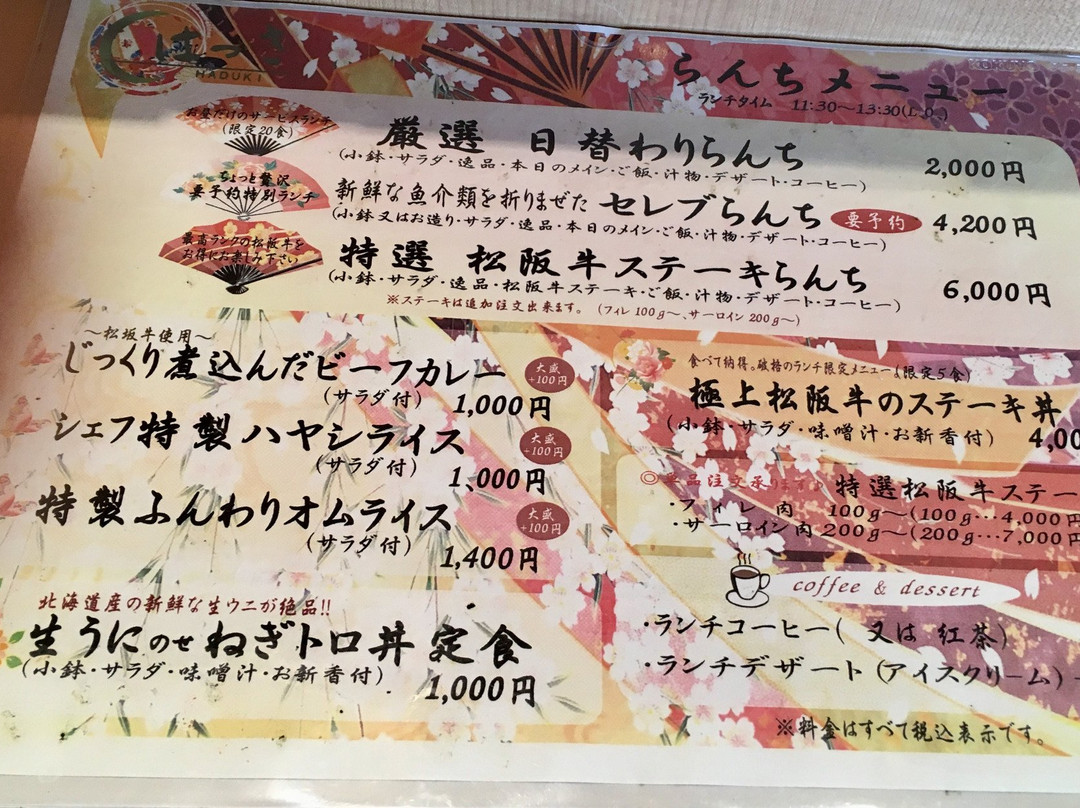 はづき
HADUKI
らんちメニュー
ランチタイム 11:30〜13:30(L.O)
お昼だけのサービスランチ
(限定20食)
厳選 日替わりらんち
2,000円
(小鉢・サラダ・逸品・本日のメイン・ご飯・汁物・デザート・コーヒー)
ちょっと贅沢
要予約特別ランチ
新鮮な魚介類を折りまぜた セレブらんち 要予約 4,200円
(小鉢又はお造り・サラダ・逸品・本日のメイン・ご飯・汁物・デザート・コーヒー)
最高ランクの松阪牛を
お得にお楽しみ下さい
特選 松阪牛ステーキらんち
6,000円
(小鉢・サラダ・逸品・松阪牛ステーキ・ご飯・汁物・デザート・コーヒー)
※ステーキは追加注文出来ます。 (フィレ100g〜、サーロイン200g〜)
〜松坂牛使用〜
じっくり煮込んだビーフカレー
大盛
+100円
(サラダ付) 1,000円
シェフ特製ハヤシライス
大盛
+100円
(サラダ付) 1,000円
特製ふんわりオムライス
大盛
+100円
(サラダ付) 1,400円
北海道産の新鮮な生ウニが絶品!!
生うにのせねぎトロ丼定食
(小鉢・サラダ・味噌汁・お新香付)
1,000円
食べて納得。破格のランチ限定メニュー♪(限定5食)
極上松阪牛のステーキ丼
(小鉢・サラダ・味噌汁・お新香付) 4,00
◎単品注文承ります♪ 特選松阪牛ステー
・フィレ肉 100g〜(100g…4,000円
・サーロイン肉 200g〜(200g…7,000円
coffee & dessert
・ランチコーヒー( 又は 紅茶)
・ランチデザート (アイスクリーム)
※料金はすべて税込表示です。